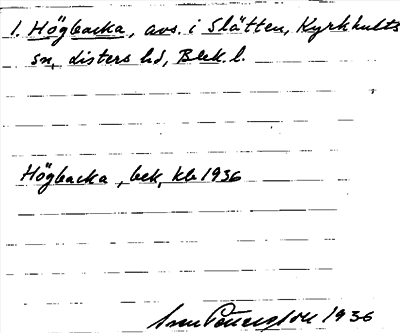 1. Högbacka, avs. i Slätten, Kyrkhults
sn, Listers hd, Blek. l.
Högbacka, bek, kb 1936
1936